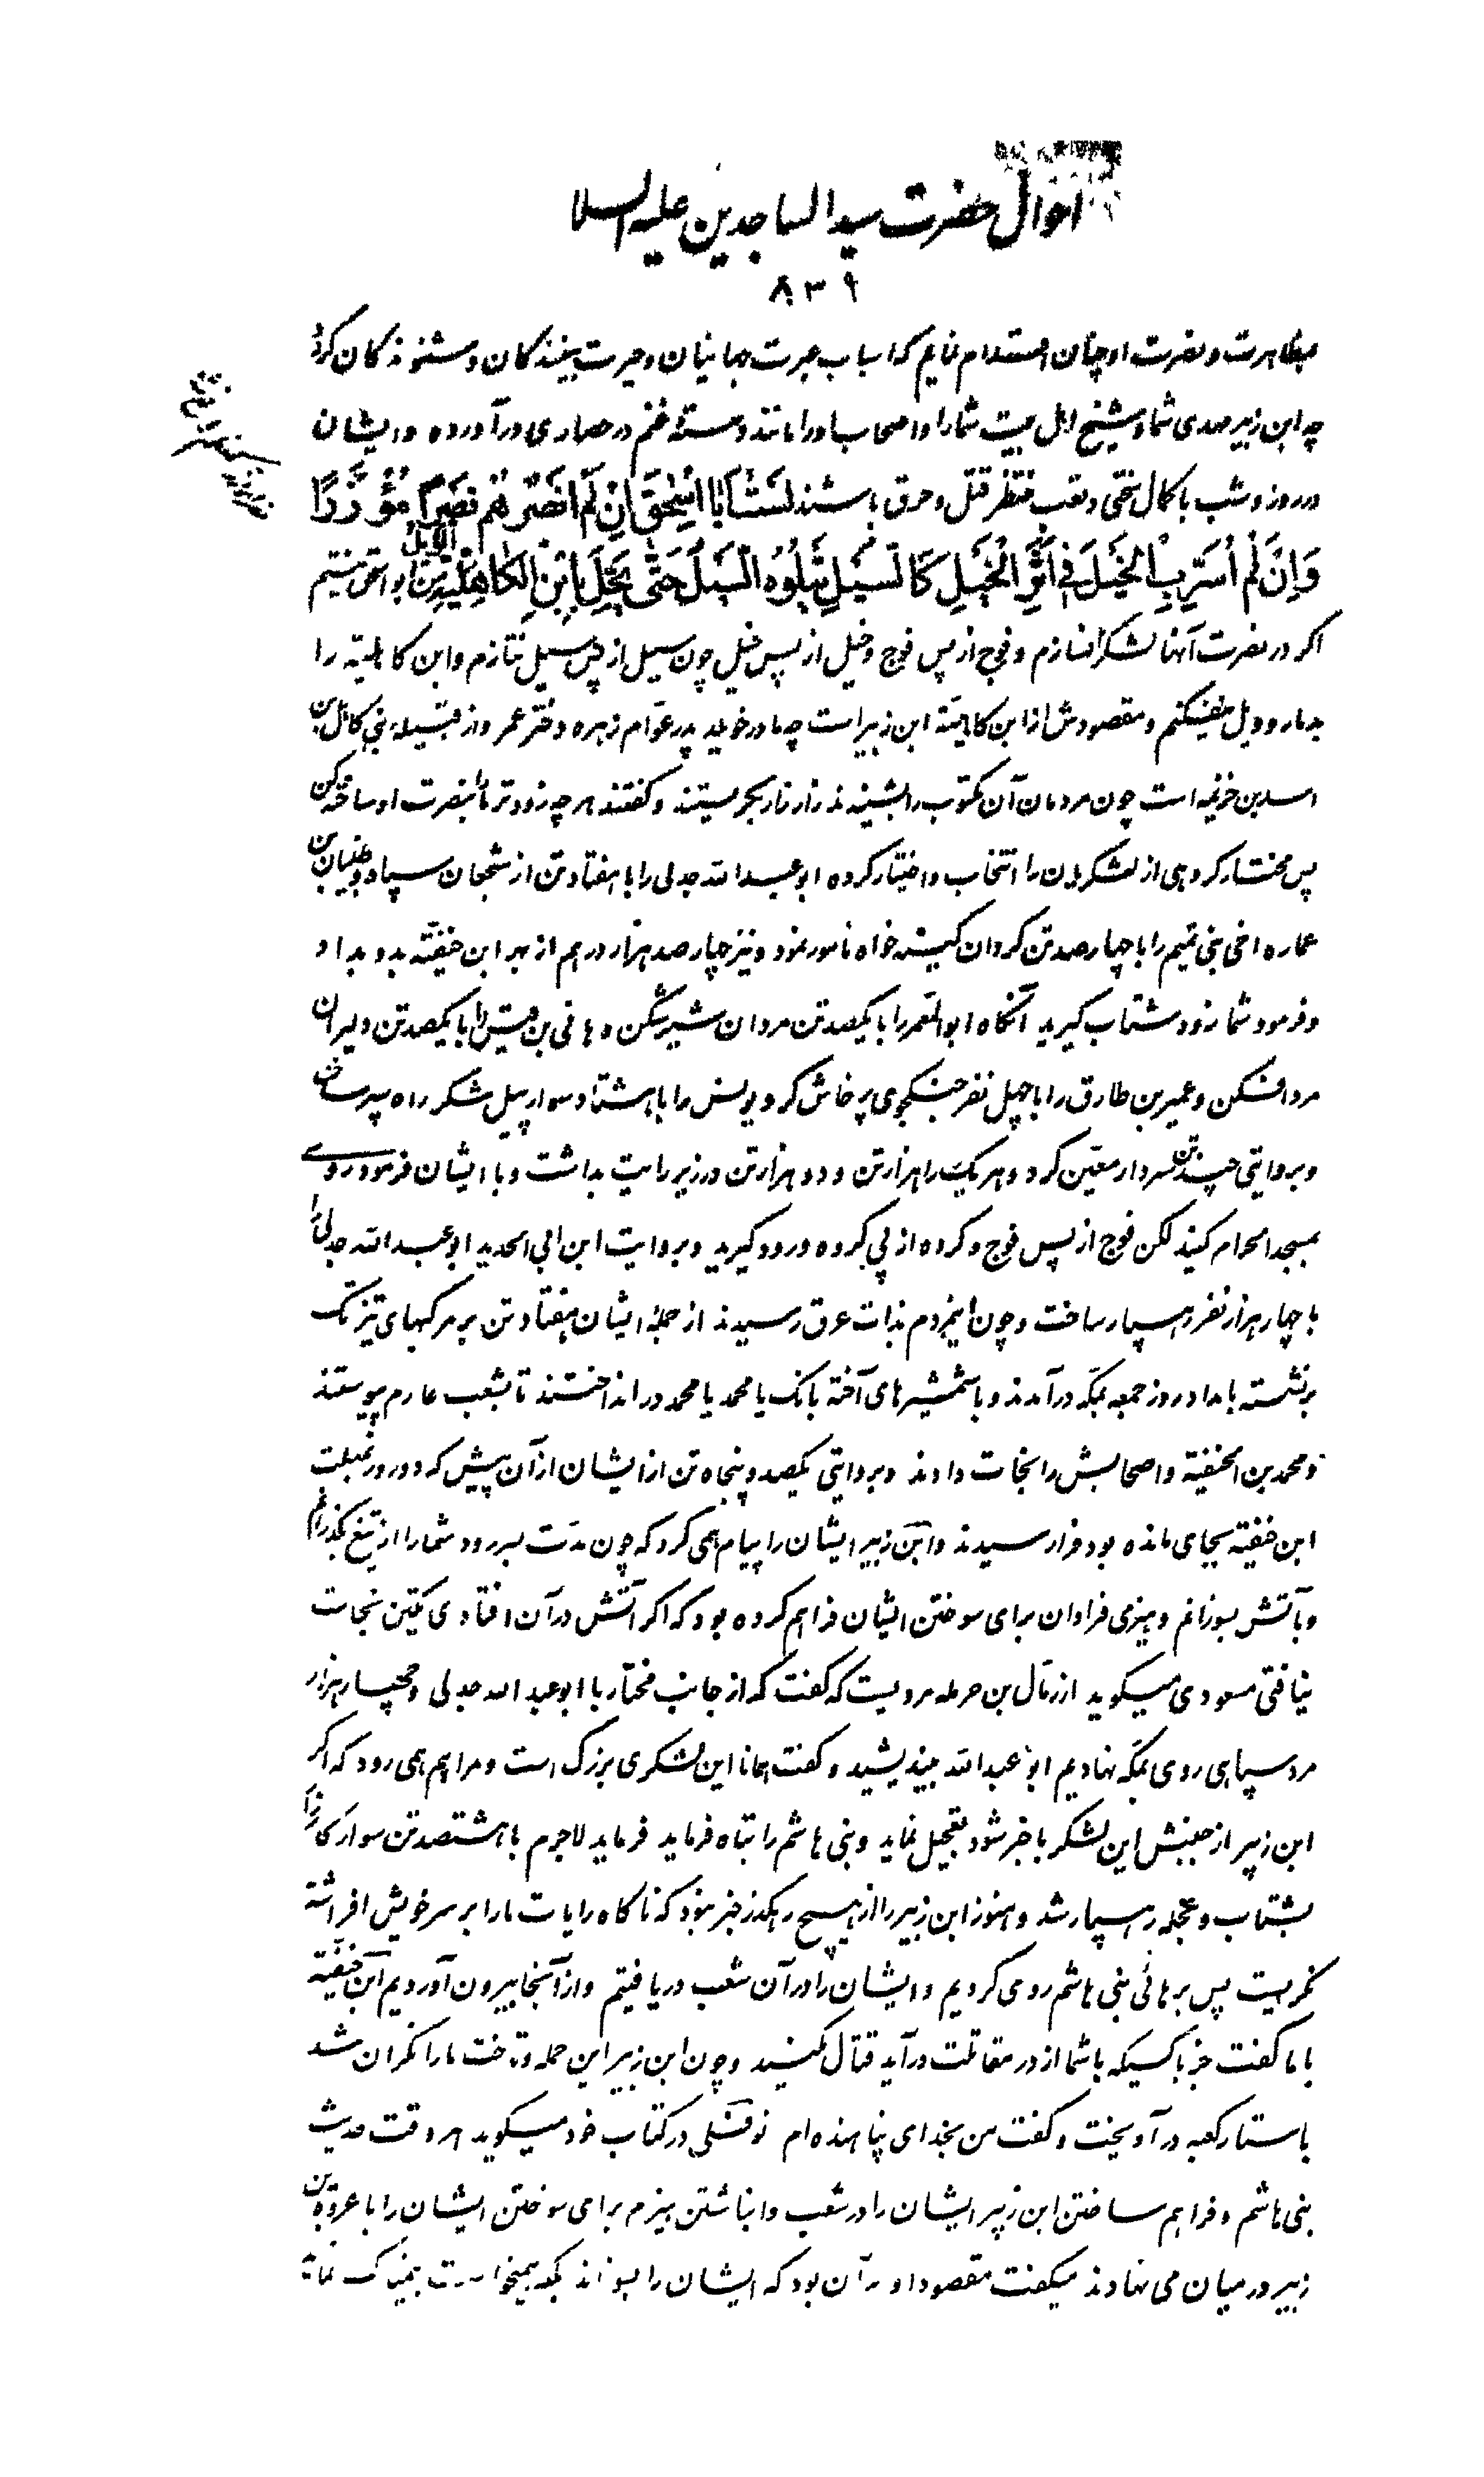 احوال حضرت سیدالساجدین علیه السلا
۸۳۹
بمظاهرت و نصرت او چنان اقدام نمایم که اسباب عبرت جهانیان و حیرت بینندکان و شنوندکان کردد
چه ابن زبیر مهدی شما و شیخ اهل بیت شما را و اصحاب او را مانند دستۀ غنم در حصاری درآورده و ایشان
در روز و شب با کمال سختی و تعب منتظر قتل و حرق باشند لَسْتُ اَبا اِسْحقَ اِنْ لَمْ اَنْصُرْهُمْ نَصْراً مُؤَزَّرًا
وَاِنْ لَمْ اُسَرِّبِ الْخَیْلَ فی اَثَرِ الْخَیْلِ کَالسَّیْلِ یَتْلُوهُ السَّیْلُ حَتّی یَحُلَّ بِابْنِ الْکاهِلِیَّةِ الْوَیْلُ من ابو اسحق نیستم
اکر در نصرت آنها لشکر نسازم و فوج از پس فوج و خیل از پس خیل چون سیل از پس سیل نتازم و ابن کاهلیّه را
بدمار و ویل نیفکنم و مقصودش از ابن کاهلیّه ابن زبیر است چه مادر خویلد پدر عوّام زهره دختر عمرو از قبیلۀ بنی کاهل بن
اسد بن خزیمه است چون مردمان آن مکتوب را بشنیدند زار زار بکریستند و کفتند هر چه زودتر ما را بنصرت او ساخته کن
پس مختار کروهی از لشکریان را انتخاب و اختیار کرده ابو عبدالله جدلی را با هفتاد تن از شجعان سپاه و ظبیان بن
عماره اخی بنی تمیم را با چهارصد تن کردان کینه خواه مامور نمود و نیز چهار صد هزار درهم از بهر ابن حنفیّه بدو بداد
و فرمود شما زود شتاب کیرید آنکاه ابو المعمر را با یکصد تن مردان شیر شکن و هانی بن قیس را با یکصد تن دلیران
مرد افکن و عمیر بن طارق را با چهل نفر جنکجوی پرخاش کر و یونس را با هشتاد سوار پیل شکر راه سپر ساخت
و بروایتی چند تن سردار معیّن کرد و هر یک را هزار تن و دو هزار تن در زیر رایت بداشت و با ایشان فرمود روی
بمسجد الحرام کنید لکن فوج از پس فوج و کروه از پی کروه ورود کیرید و بروایت ابن ابی الحدید ابو عبدالله جدلی را
با چهار هزار نفر رهسپار ساخت و چون اینمردم بذات عرق رسیدند از جملۀ ایشان هفتاد تن بر مرکبهای تیز تک
برنشسته بامداد روز جمعه بمکّه درآمدند و با شمشیرهای آخته بانک یا محمد یا محمد در انداختند تا بشعب عارم پیوستند
و محمد بن الحنفیّه و اصحابش را نجات دادند و بروایتی یکصد و پنجاه تن از ایشان از آن پیش که دو روز بمهلت
ابن حنفیّه بجای مانده بود فرار سیدند و ابن زبیر ایشان را پیام همی کرد که چون مدّت بسر رود شما را از تیغ بکذرانم
و بآتش بسوزانم و هیزمی فراوان برای سوختن ایشان فراهم کرده بود که اکر آتش در آن افتادی یکتن نجات
نیافتی مسعودی میکوید از زمّال بن حرمله مرویست که کفت که از جانب مختار با ابو عبدالله جدلی و چهار هزار
مرد سپاهی روی بمکّه نهادیم ابو عبدالله بیندیشید و کفت همانا این لشکری بزرک است و مرا بیم همی رود که اکر
ابن زبیر از جنبش این لشکر با خبر شود تعجیل نماید و بنی هاشم را تباه فرماید فرماید لاجرم با هشتصد تن سوار کارزار
بشتاب و عجله رهسپار شد و هنوز ابن زبیر را از هیچ رهکذر خبر نبود که ناکاه رایات ما را بر سر خویش افراشته
نکریست پس برهائی بنی هاشم روی کردیم و ایشان را در آن شعب دریافتیم و از آنجا بیرون آوردیم ابن حنفیّه
با ما کفت جز با کسیکه با شما از در مقاتلت درآید قتال نکنید و چون ابن زبیر این حمله و تاخت ما را نکران شد
باستار کعبه در آویخت و کفت من بخدای پناهنده ام نوفلی در کتاب خود میکوید هر وقت حدیث
بنی هاشم و فراهم ساختن ابن زبیر ایشان را در شعب و انباشتن هیزم برای سوختن ایشان را با عروة بن
زبیر در میان می نهادند میکفت مقصود او نه آن بود که ایشان را بسوزاند بلکه همیخواست بیمناک نماید